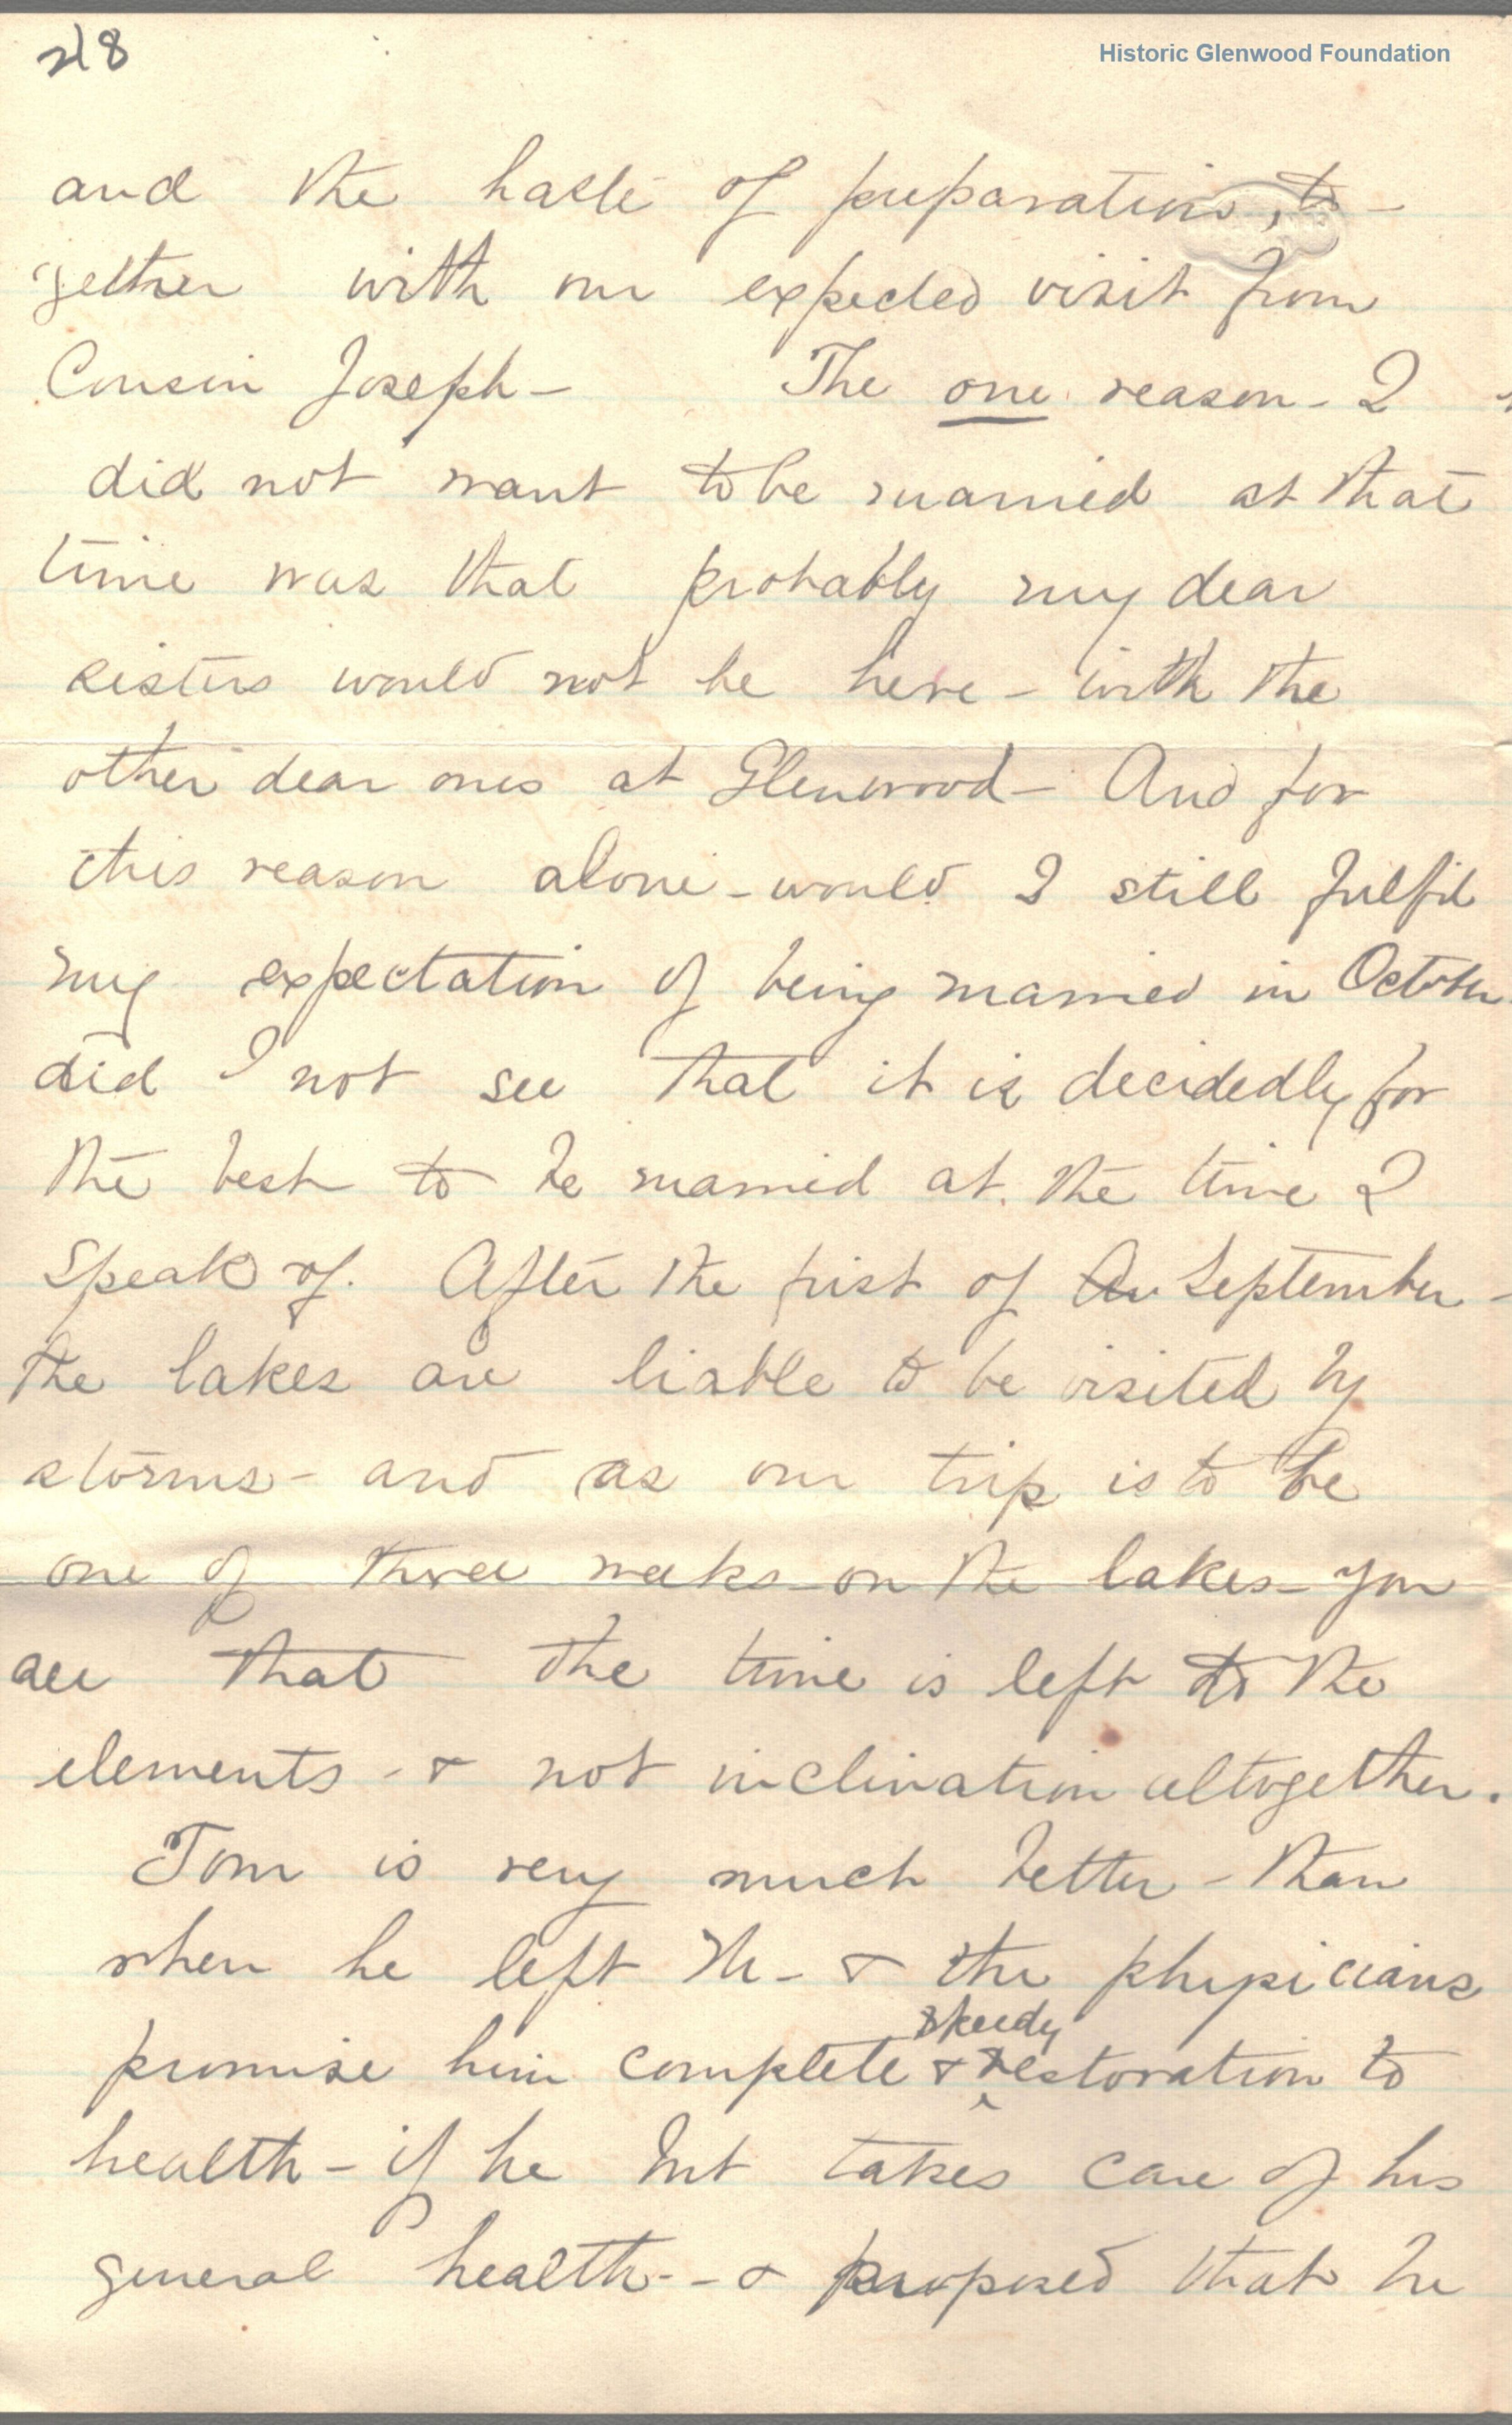 218
Historic Glenwood Foundation
and the haste of preparation, to-
gether with our expected visit from
Cousin Joseph- The one reason- I
did not want to be married at that
time was that probably my dear
sisters would not be here- with the
other dear ones at Glenwood- And for
this reason alone- would I still fulfil
my expectation of being married in October
did I not see that it is decidedly for
the best to be married at the time I
speak of. After the first of Au September-
the lakes are liable to be visited by
storms- and as our trip is to be
one of three weeks on the lakes- you
see that the time is left to the
elements- & not inclination altogether.
Tom is very much better- than
when he left M- & the physicians
speedy
promise him complete & restoration to
health- if he but takes care of his
general health-- & proposed that he